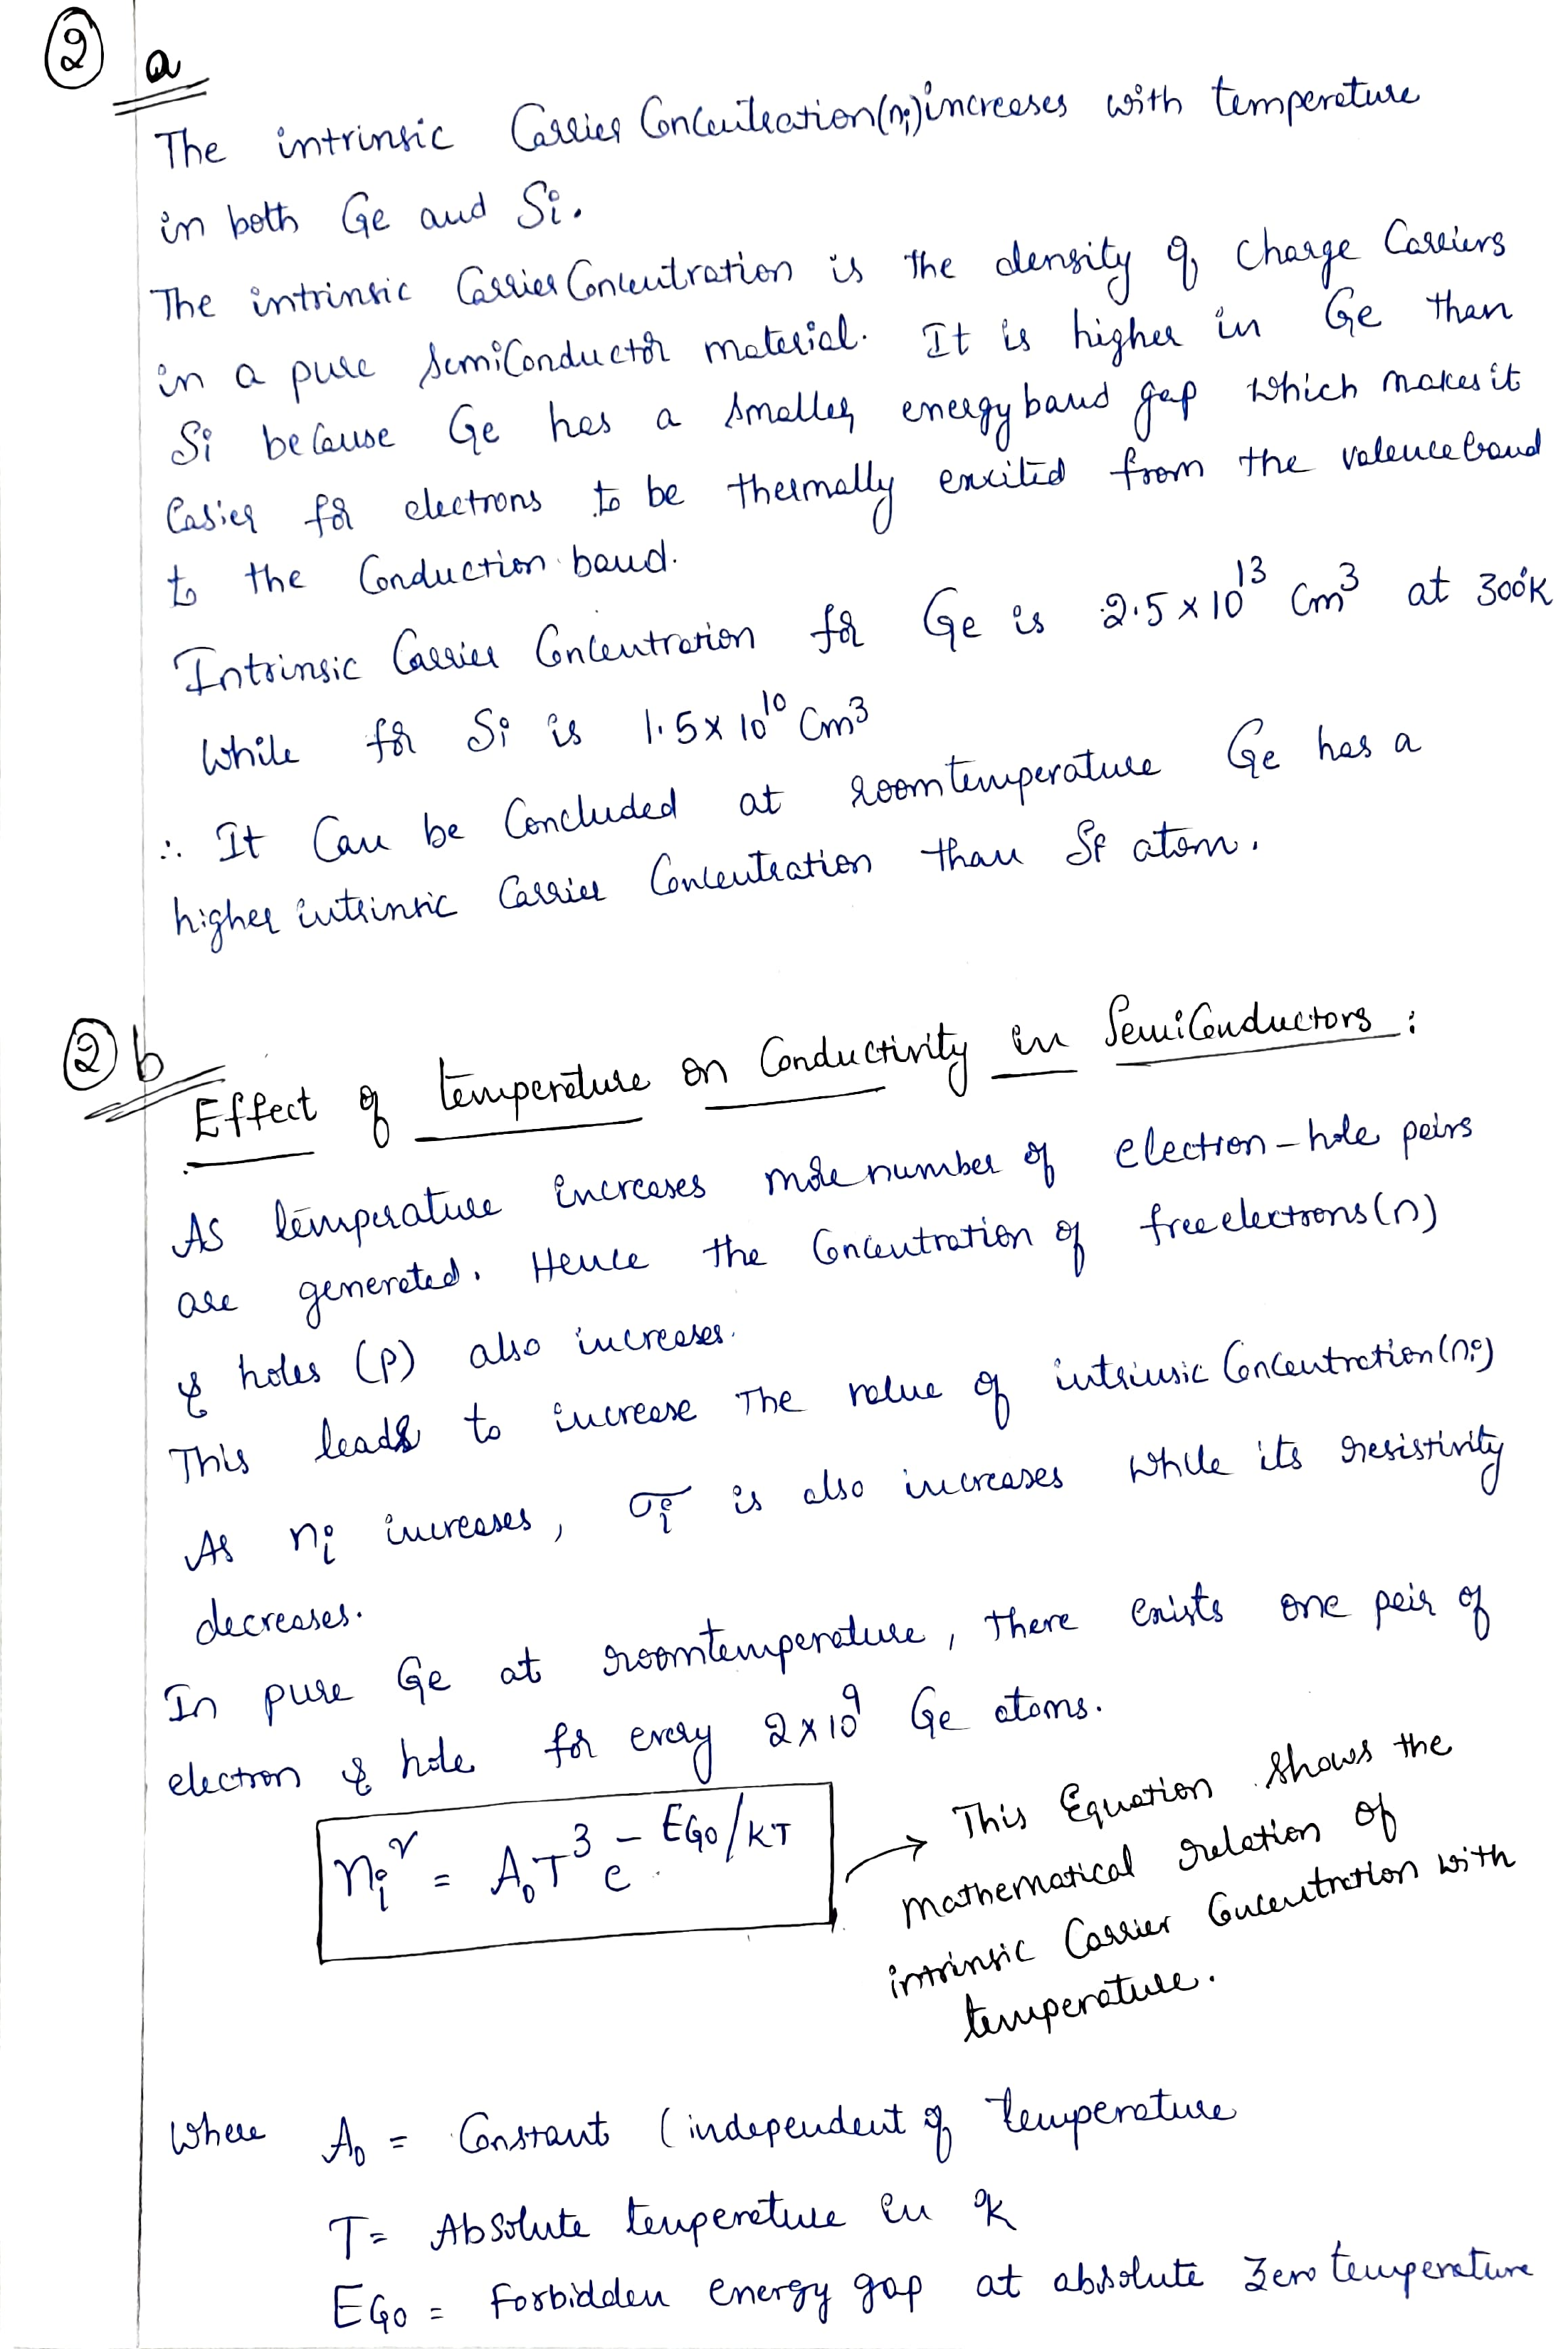 ② a
The intrinsic Carrier Concentration(ni) increases with temperature
in both Ge and Si.
The intrinsic Carrier Concentration is the density of Charge Carriers
in a pure Semiconductor material. It is higher in Ge than
Si because Ge has a smaller energy band gap which makes it
easier for electrons to be thermally excited from the valence band
to the Conduction band.
Intrinsic Carrier Concentration for Ge is 2.5 x 10^13 cm^3 at 300°K
While for Si is 1.5 x 10^10 cm^3
∴ It Can be Concluded at room temperature Ge has a
higher intrinsic Carrier Concentration than Si atom.
② b
Effect of temperature on Conductivity in Semiconductors :
As temperature increases more number of electron - hole pairs
are generated. Hence the Concentration of free electrons (n)
& holes (p) also increases.
This leads to increase The value of intrinsic Concentration (ni)
As ni increases, σi is also increases while its resistivity
decreases.
In pure Ge at room temperature, there exists one pair of
electron & hole for every 2 x 10^9 Ge atoms.
ni^2 = A₀T^3 e^-EG0/KT
→ This Equation shows the
mathematical relation of
intrinsic Carrier Concentration with
temperature.
Where A₀ = Constant (independent of temperature
T = Absolute temperature in °K
EG0 = Forbidden energy gap at absolute Zero temperature